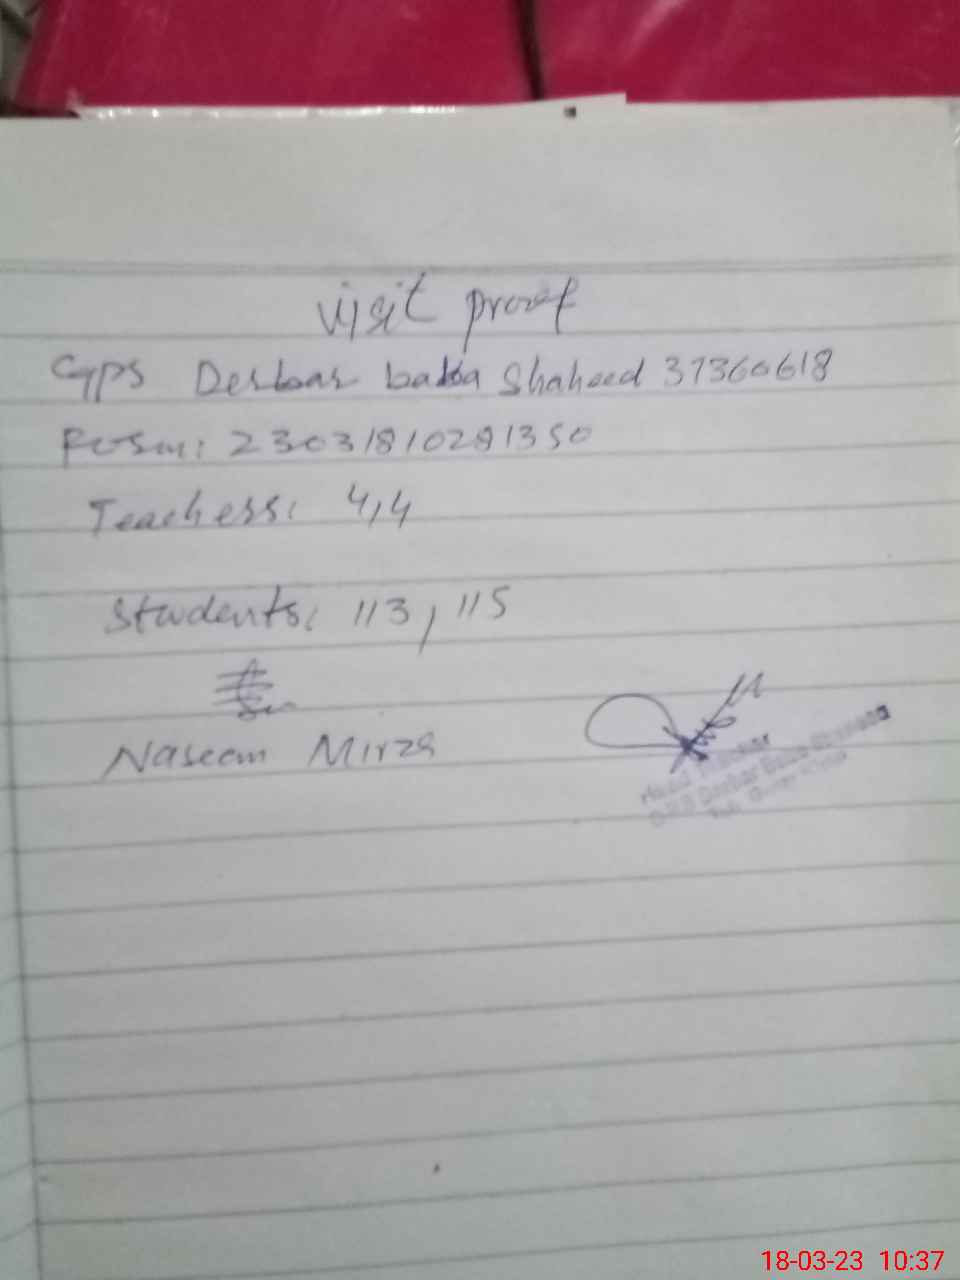 visit proof
GPS Derbar baba Shaheed 37360618
Form: 23031810281350
Teachers: 4,4
Students: 113, 115
Naseem Mirza
Head Teacher
Darbar Baba Shaheed
18-03-23 10:37